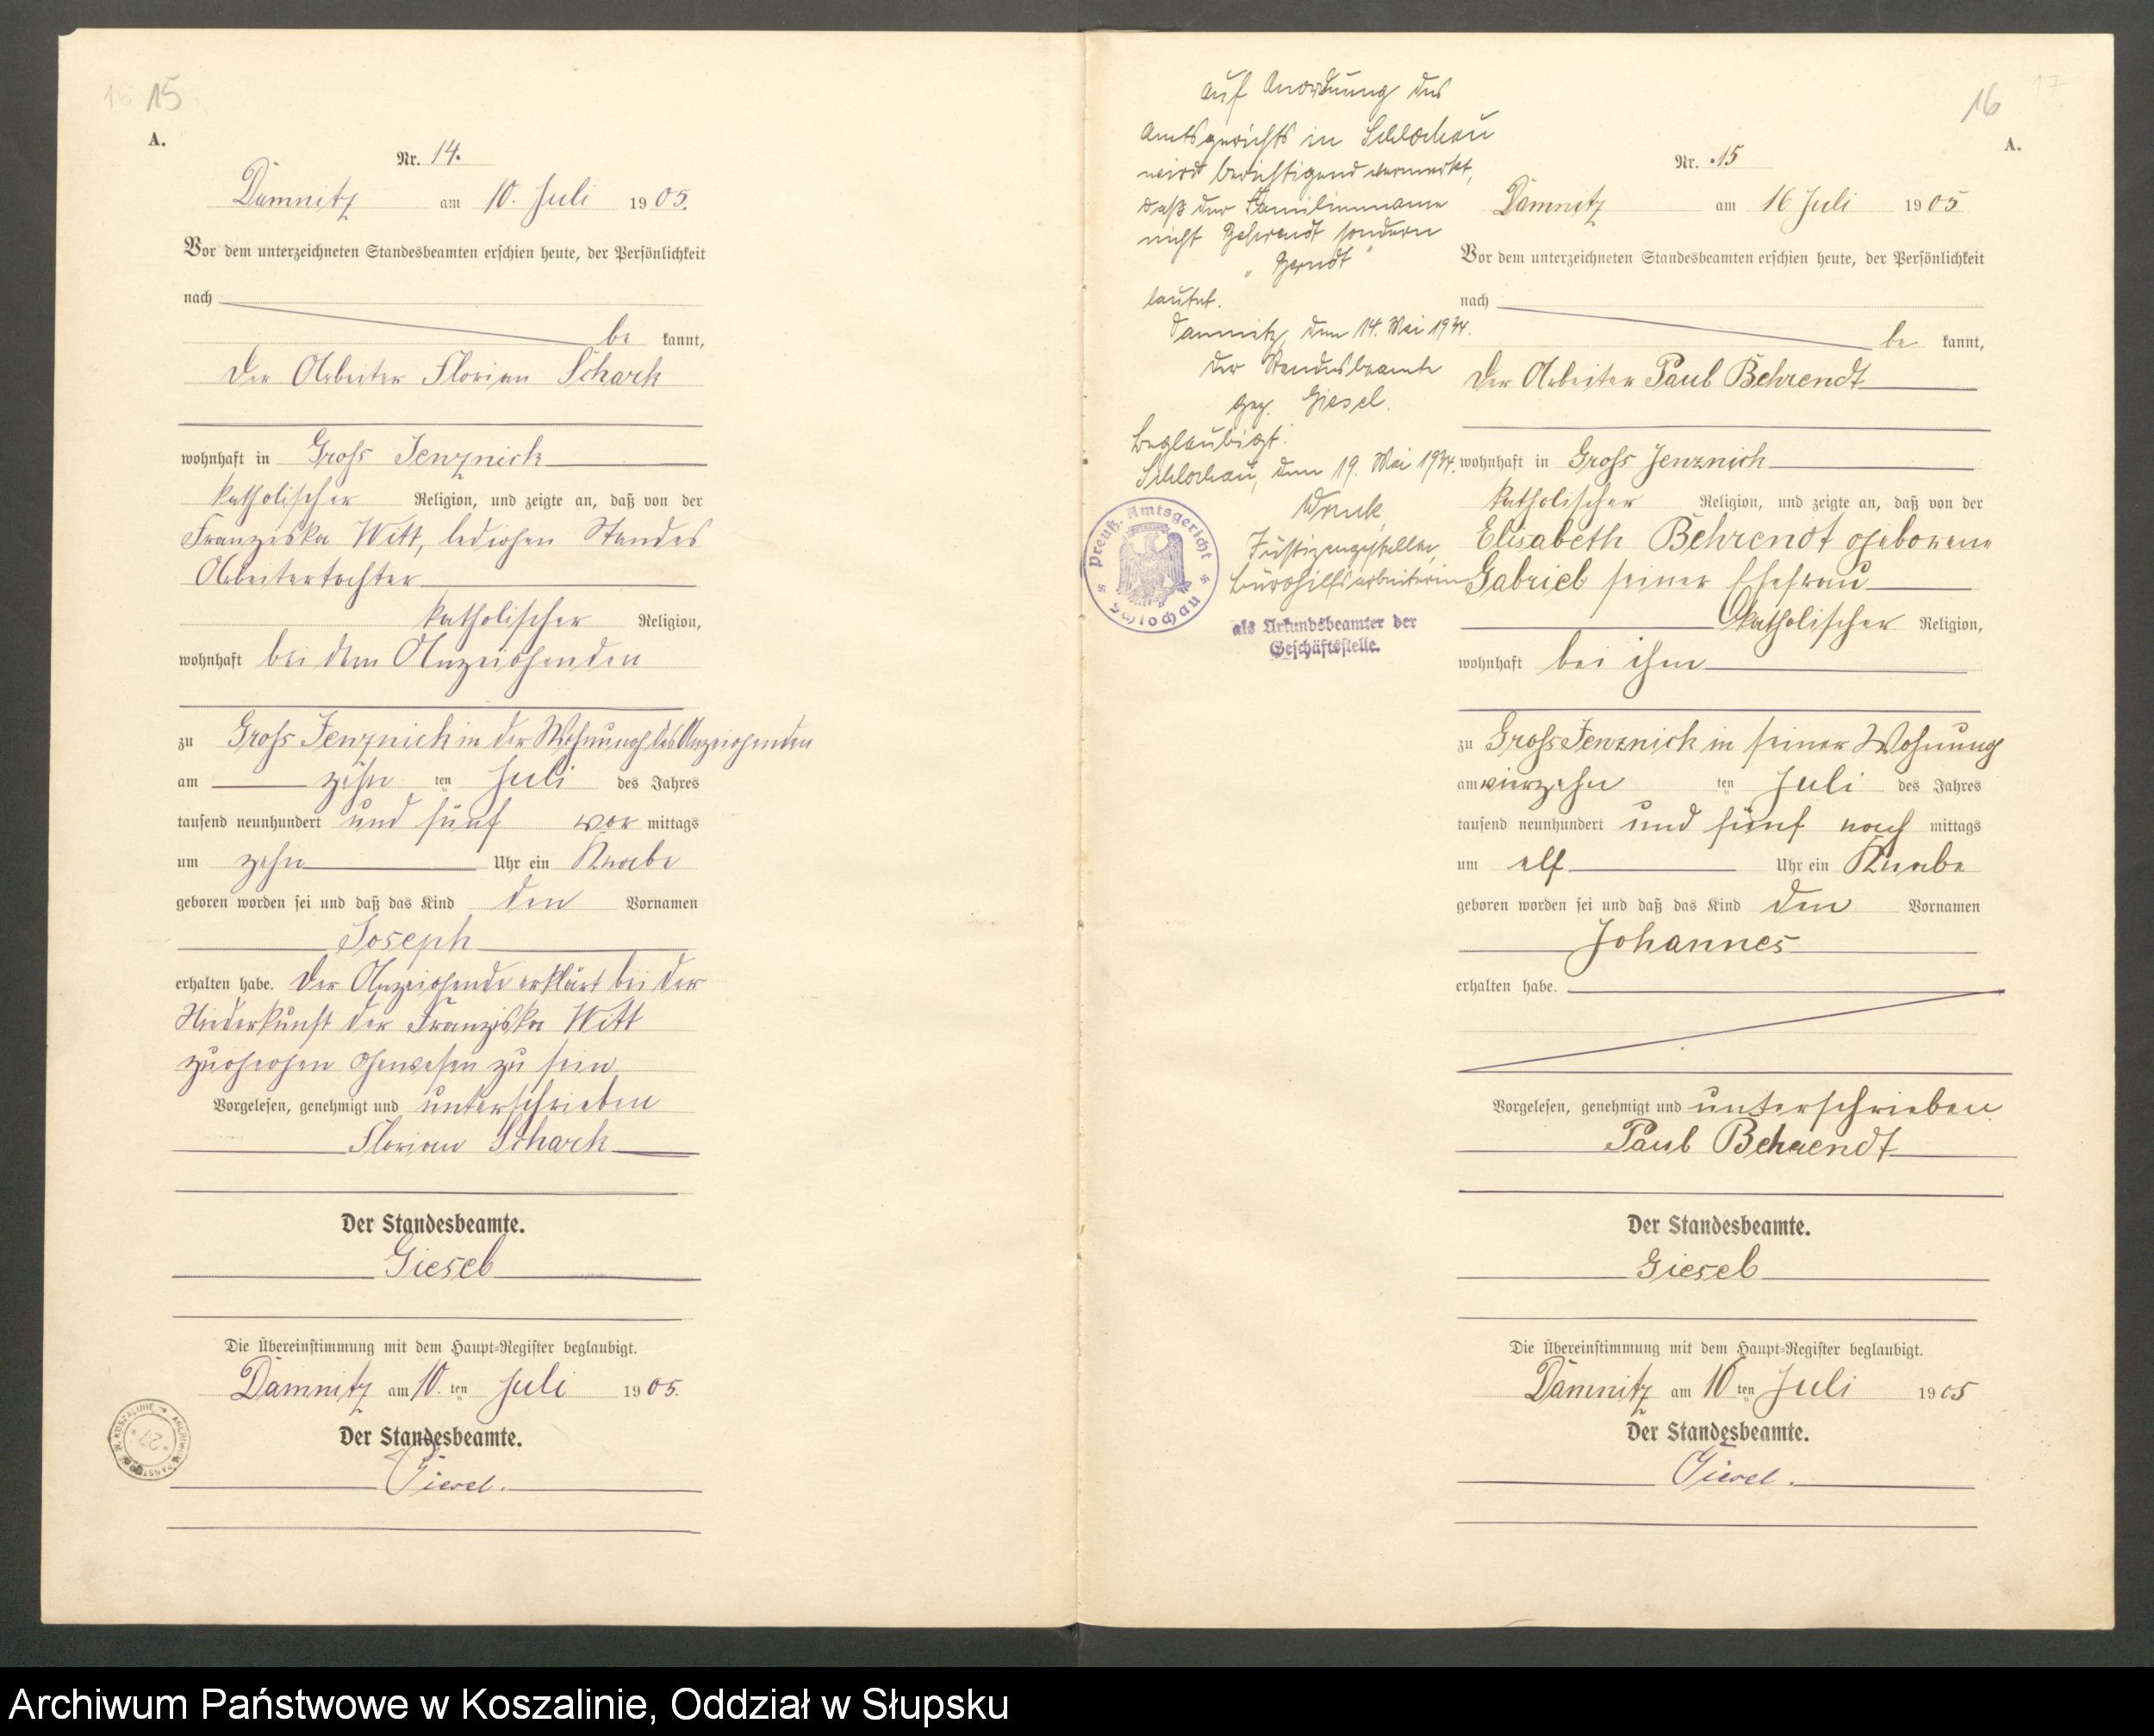 15
A.
Nr. 14.
Damnitz am 10. Juli 1905.
Vor dem unterzeichneten Standesbeamten erschien heute, der Persönlichkeit
nach
be kannt,
der Arbeiter Florian Schark
wohnhaft in Gross Jenznick
katholischer Religion, und zeigte an, daß von der
Franziska Witt, ledigen Standes
Arbeitertochter
katholischer Religion,
wohnhaft bei dem Anzeigenden
zu Gross Jenznick in der Wohnung des Anzeigenden
am zehn ten Juli des Jahres
tausend neunhundert und fünf vor mittags
um zehn Uhr ein Knabe
geboren worden sei und daß das Kind den Vornamen
Joseph
erhalten habe. Der Anzeigende erklärt bei der
Niederkunft der Franziska Witt
zugegen gewesen zu sein
Vorgelesen, genehmigt und unterschrieben
Florian Schark
Der Standesbeamte.
Giesel
Die Übereinstimmung mit dem Haupt-Register beglaubigt.
Damnitz am 10. ten Juli 1905.
Der Standesbeamte.
Giesel.
auf Anordnung des
Amtsgerichts in Schlochau
wird berichtigend vermerkt,
daß der Familienname
nicht Behrendt sondern
"Berndt"
lautet.
Damnitz, den 14. Mai 1934.
Der Standesbeamte
gez. Giesel.
Beglaubigt:
Schlochau, den 19. Mai 1934.
Justizangestellte,
Bürohilfsarbeiterin
als Urkundsbeamter der
Geschäftsstelle.
Preuß. Amtsgericht
Schlochau
16
17
A.
Nr. 15
Damnitz am 16 Juli 1905
Vor dem unterzeichneten Standesbeamten erschien heute, der Persönlichkeit
nach
be kannt,
der Arbeiter Paul Behrendt
wohnhaft in Gross Jenznick
katholischer Religion, und zeigte an, daß von der
Elisabeth Behrendt geborene
Gabriel seiner Ehefrau
katholischer Religion,
wohnhaft bei ihm
zu Gross Jenznick in seiner Wohnung
am vierzehn ten Juli des Jahres
tausend neunhundert und fünf nach mittags
um elf Uhr ein Knabe
geboren worden sei und daß das Kind den Vornamen
Johannes
erhalten habe.
Vorgelesen, genehmigt und unterschrieben
Paul Behrendt
Der Standesbeamte.
Giesel
Die Übereinstimmung mit dem Haupt-Register beglaubigt.
Damnitz am 16 ten Juli 1905
Der Standesbeamte.
Giesel.
Archiwum Państwowe w Koszalinie, Oddział w Słupsku